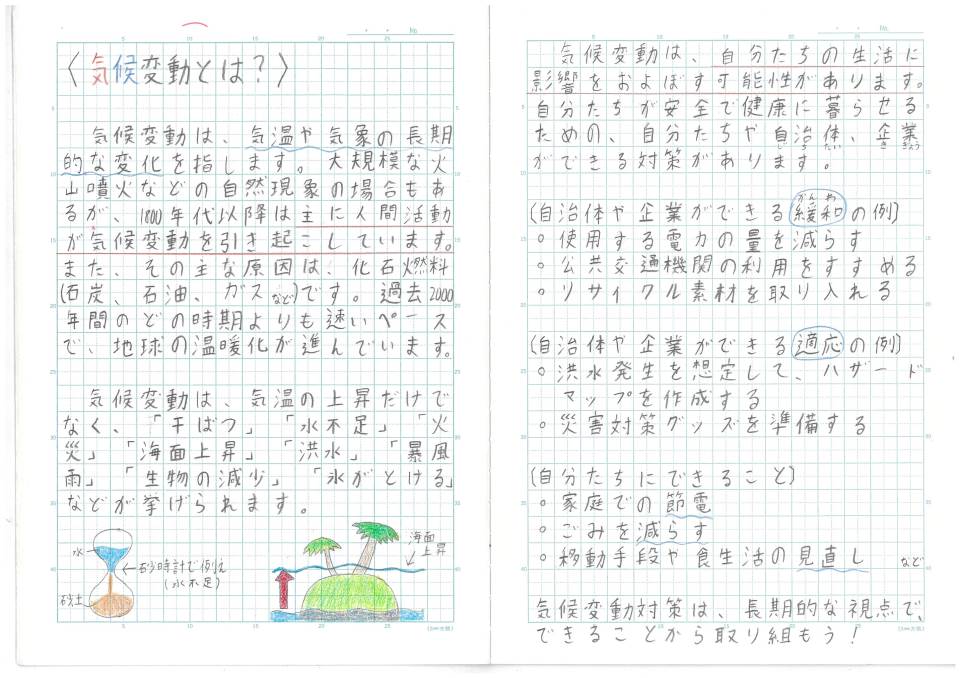 〈気候変動とは?〉
気候変動は、気温や気象の長期
的な変化を指します。大規模な火
山噴火などの自然現象の場合もあ
るが、1800年代以降は主に人間活動
が気候変動を引き起こしています。
また、その主な原因は、化石燃料
(石炭、石油、ガスなど)です。過去2000
年間のどの時期よりも速いペース
で、地球の温暖化が進んでいます。
気候変動は、気温の上昇だけで
なく、「干ばつ」「水不足」「火
災」「海面上昇」「洪水」「暴風
雨」「生物の減少」「氷がとける」
などが挙げられます。
水
砂時計で例え
(水不足)
砂土
海面
上昇
気候変動は、自分たちの生活に
影響をおよぼす可能性があります。
自分たちが安全で健康に暮らせる
ための、自分たちや自治体、企業
ができる対策があります。
(自治体や企業ができる緩和の例)
○使用する電力の量を減らす
○公共交通機関の利用をすすめる
○リサイクル素材を取り入れる
(自治体や企業ができる適応の例)
○洪水発生を想定して、ハザード
マップを作成する
○災害対策グッズを準備する
(自分たちにできること)
○家庭での節電
○ごみを減らす
○移動手段や食生活の見直し など
気候変動対策は、長期的な視点で、
できることから取り組もう!